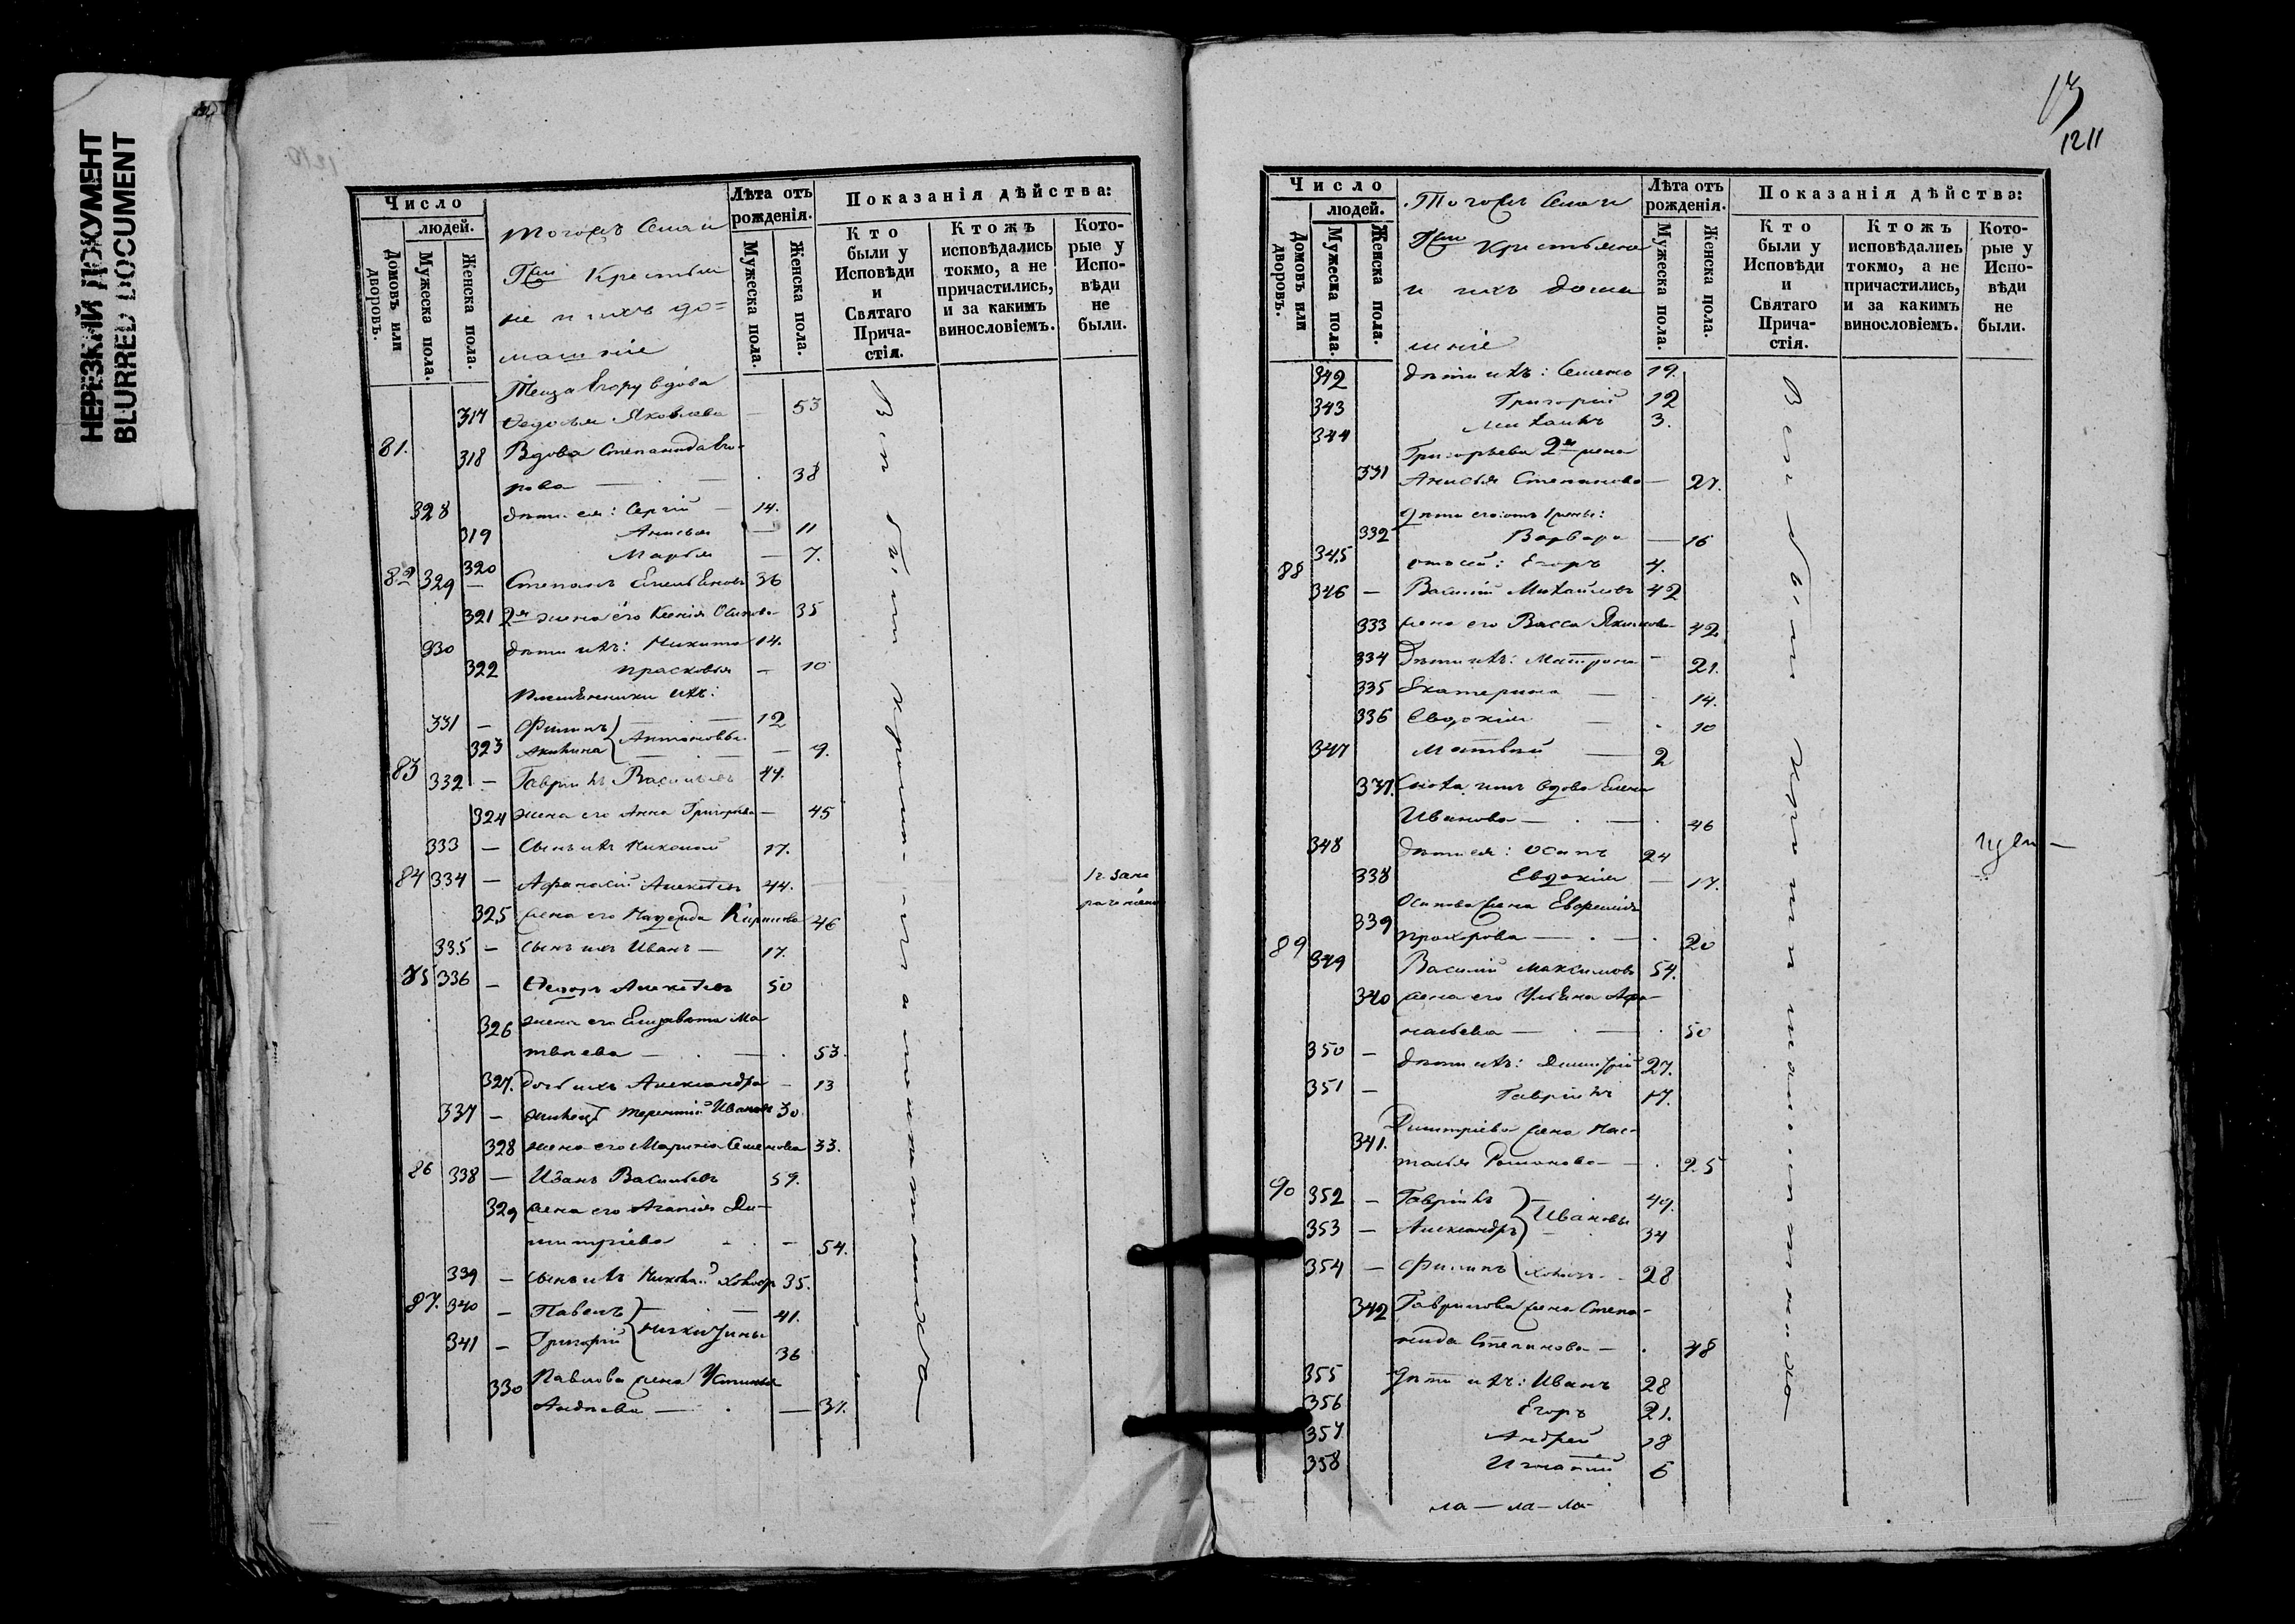 НЕРЕЗКИЙ ДОКУМЕНТ
BLURRED DOCUMENT
Число
людей.
Домовъ или дворовъ.
Мужеска пола.
Женска пола.
Тогожъ Села и
Крестья
не и ихъ до=
машніе
Лѣта отъ рожденія.
Мужеска пола.
Женска пола.
Показанія дѣйства:
Кто были у Исповѣди и Святаго Причастія.
Ктожъ исповѣдались токмо, а не причастились, и за какимъ винословіемъ.
Которые у Исповѣди не были.
Теща Егору вдова
317 Федосья Яковлева — 53
81. 318 Вдова Степанида
рова — 38
328 дѣти ея: Сергій — 14.
319 Анисья — 11
320 Марѳа — 7.
82 329 — Степанъ Емельяновъ 36
321 2я жена его Ксенія Осипова 35
330 дѣти ихъ: Никита 14.
322 Прасковья — 10
Племянники ихъ:
331 — Филипъ — 12
323 Акилина Антоновы — 9.
83 332 — Гаврилъ Васильевъ 44.
324 жена его Анна Григорьева — 45
333 — Сынъ ихъ Николай 17.
84 334 — Афанасій Алексѣевъ 44.
325 жена его Надежда Кирилова 46
335 — сынъ ихъ Иванъ — 17.
85 336 — Федоръ Алексѣевъ 50
326 жена его Елизавета Ма
твѣева — 53.
327. дочь ихъ Александра — 13
337 — Терентій Ивановъ 30
328 жена его Марина Семенова 33.
86 338 — Иванъ Васильевъ 59.
329 жена его Агапія Ди-
митріева — 54.
339 — сынъ ихъ Николай холост 35.
87. 340 — Павелъ — 41.
341 — Григорій Никитины 36
330 Павлова жена Устинья
Андреева — 37.
Вси были и причащались
13
1211
Число
людей.
Домовъ или дворовъ.
Мужеска пола.
Женска пола.
Тогожъ Села и
Крестьяне
и ихъ дома
шніе
Лѣта отъ рожденія.
Мужеска пола.
Женска пола.
Показанія дѣйства:
Кто были у Исповѣди и Святаго Причастія.
Ктожъ исповѣдались токмо, а не причастились, и за какимъ винословіемъ.
Которые у Исповѣди не были.
342 дѣти ихъ: Семенъ 19.
343 Григорій 12
344 Михаилъ 3.
Григорьева 2я жена
331 Анисья Степанова — 27.
дѣти его отъ 1 жены:
332 Варвара — 16
345 отъ сей: Егоръ 4.
88 346 — Василій Михайловъ 42
333 жена его Васса Якимова 42
334 Дѣти ихъ: Матрона — 21.
335 Екатерина — 14.
336 Евдокія — 10
347 Матвѣй — 2
337. Сноха ихъ вдова Елена
Иванова — 46
348 дѣти ея: Осипъ 24
338 Евдокія — 17.
Осипова жена Евфимія
339 Прохорова — 20
89 349 Василій Максимовъ 54.
340 жена его Ульяна Афа-
насьева — 50
350 — дѣти ихъ: Димитрій 27.
351 — Гаврилъ 17.
Димитріева жена На-
341. талья Романова — 25
90 352 — Гаврилъ — 49.
353 — Александръ Ивановы 34
354 — Филипъ холост. 28
342 Гаврилова жена Степа-
нида Степанова — 48
355 дѣти ихъ: Иванъ 28
356 Егоръ 21.
357 Андрей 18
358 Игнатій 6
ла — ла — ла
Вси были и причащались